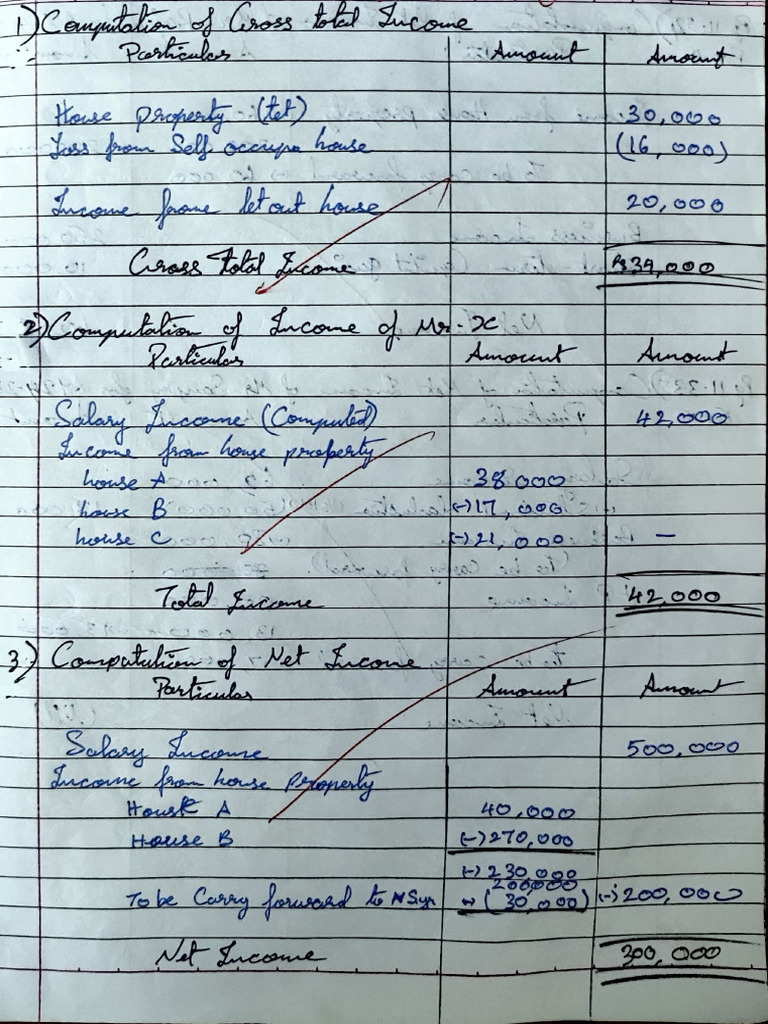 1) Computation of Gross total Income
Particulars Amount Amount
House property (let) 30,000
Loss from Self occupa house (16,000)
Income frome let out house 20,000
Gross Total Income Rs 34,000
2) Computation of Income of Mr. X
Particulars Amount Amount
Salary Income (Computed) 42,000
Income from house property
house A 38000
house B (-) 17,000
house C (-) 21,000 —
Total Income 42,000
3) Computation of Net Income
Particulars Amount Amount
Salary Income 500,000
Income from house property
House A 40,000
House B (-) 270,000
(-) 230,000
200,000
To be Carry forward to (30,000) (-) 200,000
Net Income 300,000